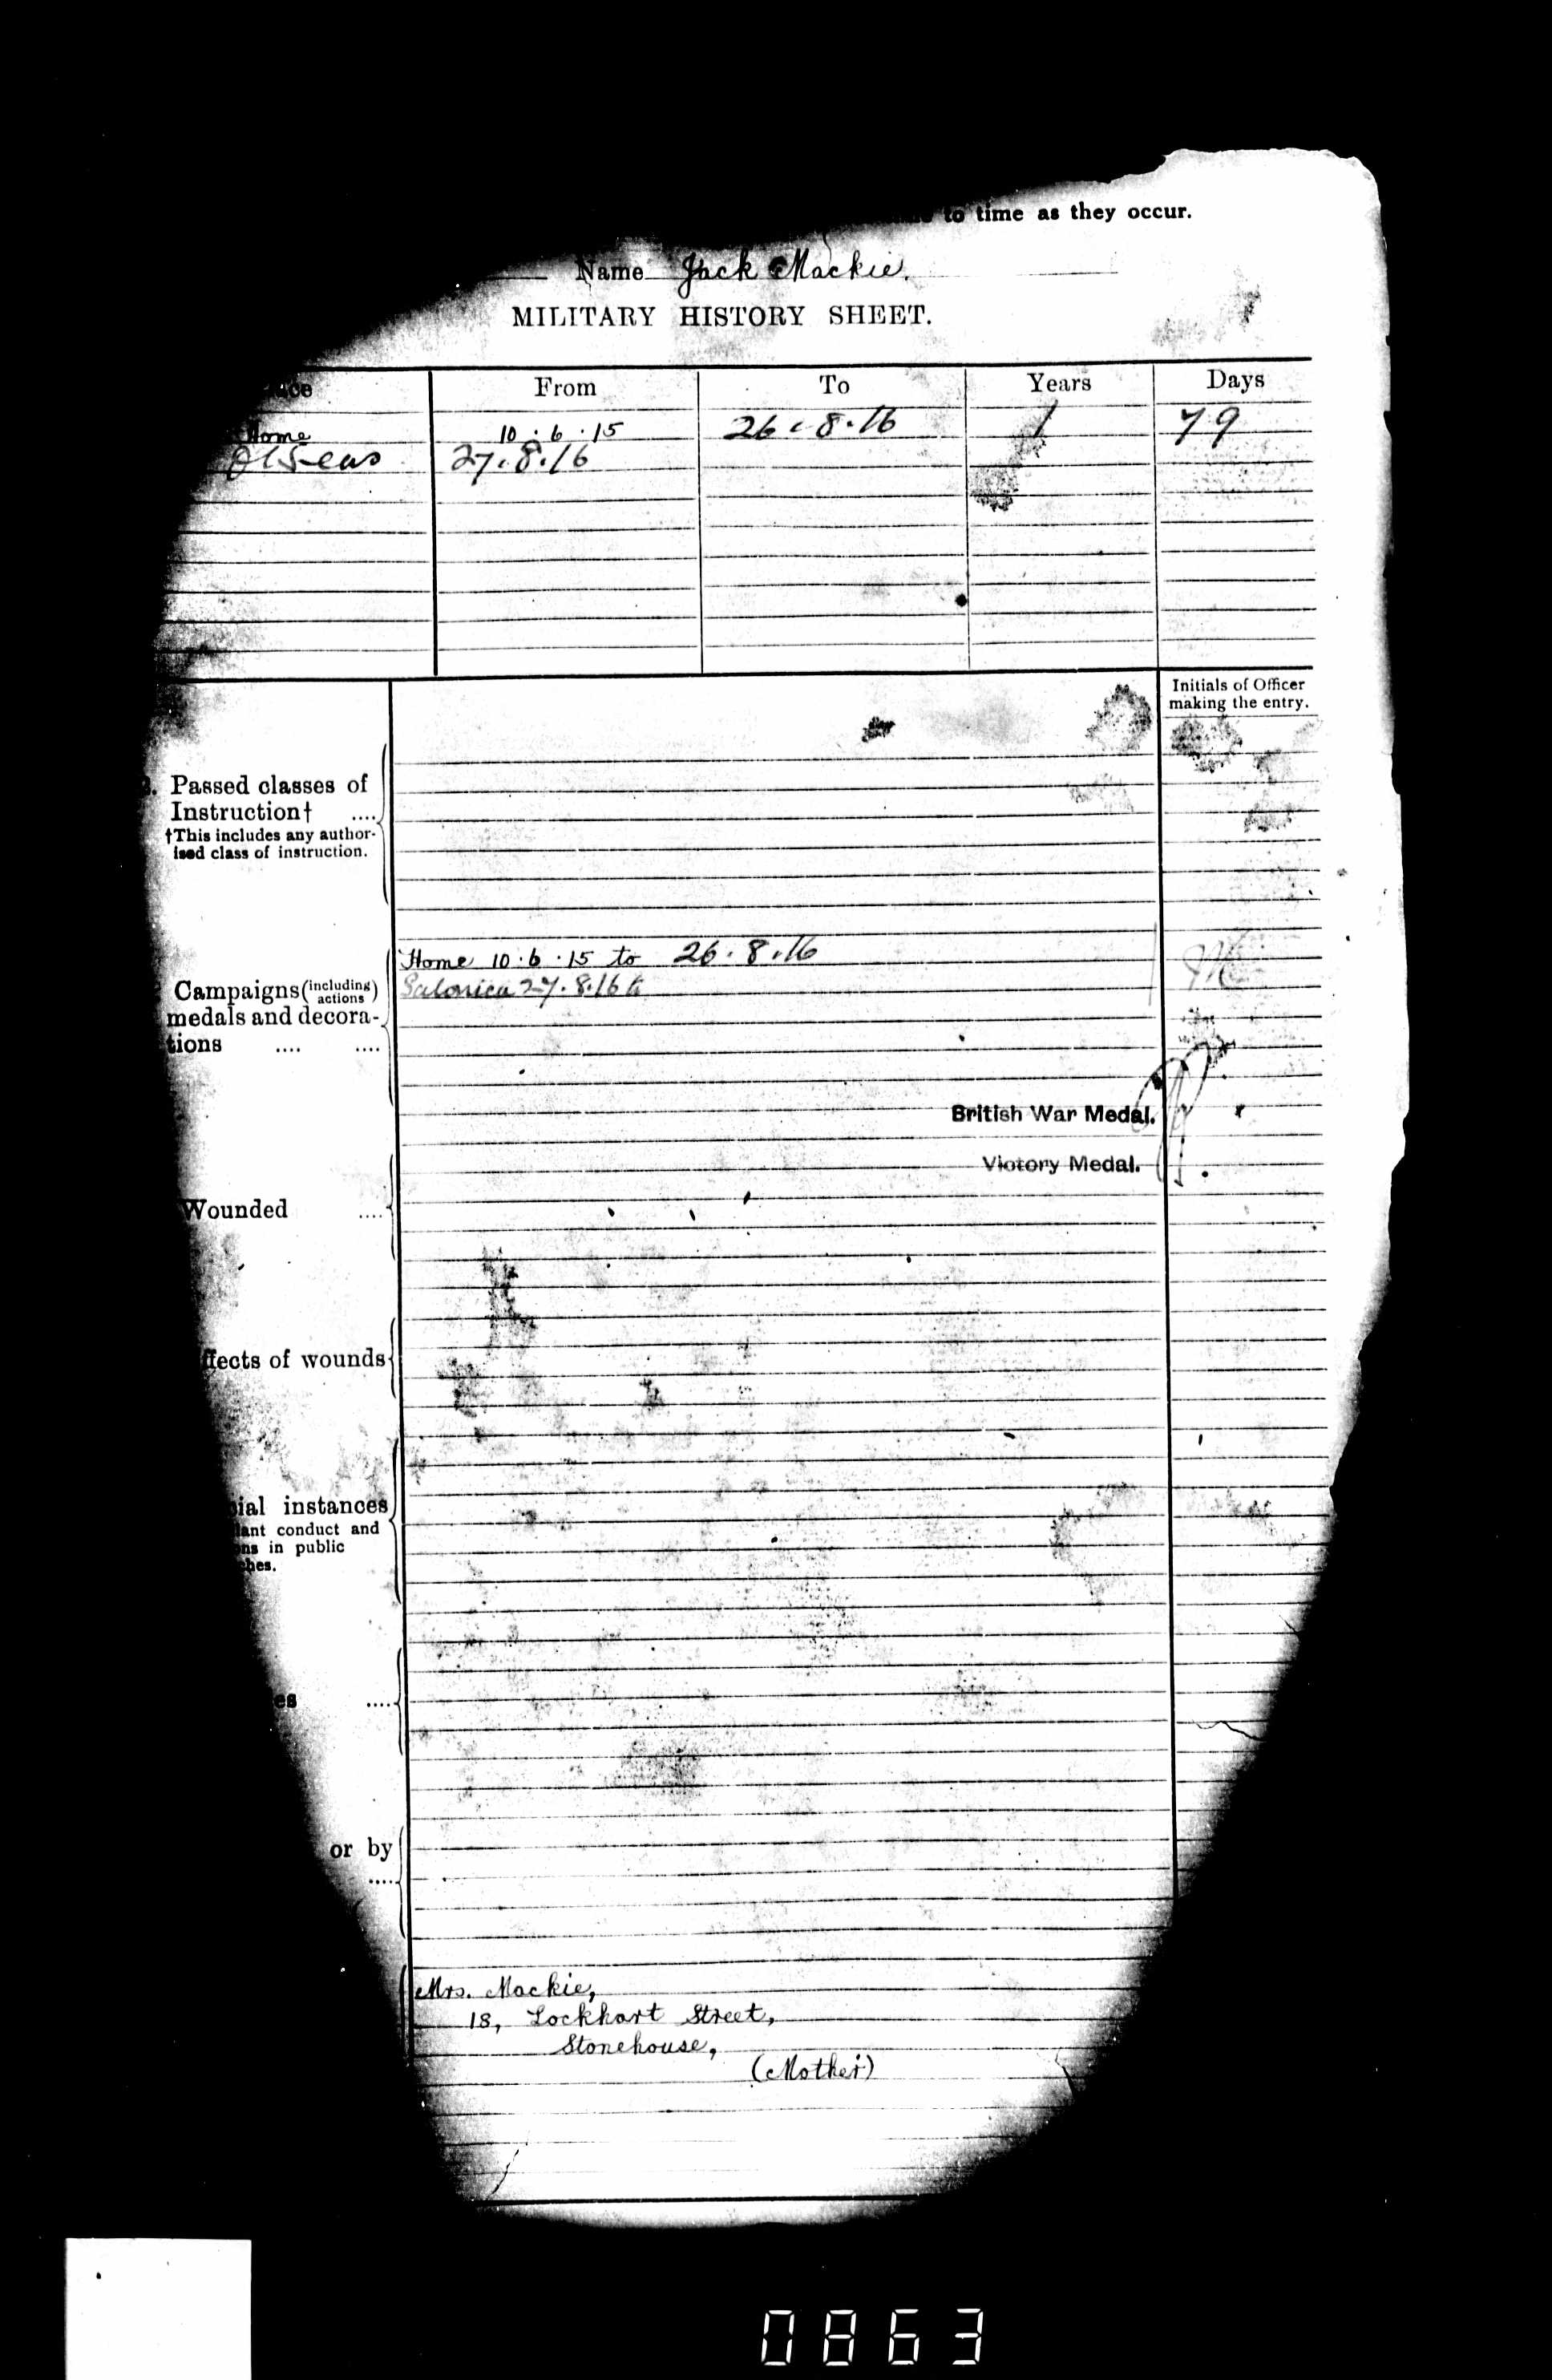 to time as they occur.
Name Jack Mackie.
MILITARY HISTORY SHEET.
From To Years Days
Home 10.6.15 26.8.16 1 79
O/Seas 27.8.16
Initials of Officer
making the entry.
Passed classes of
Instruction† ....
†This includes any author-
ised class of instruction.
Home 10.6.15 to 26.8.16
Campaigns (including actions) Salonica 27.8.16 to
medals and decora-
tions .... ....
British War Medal.
Victory Medal.
Wounded ....
ffects of wounds
ial instances
ant conduct and
ns in public
ches.
es ....
or by
....
Mrs. Mackie,
18, Lockhart Street,
Stonehouse,
(Mother)
0863